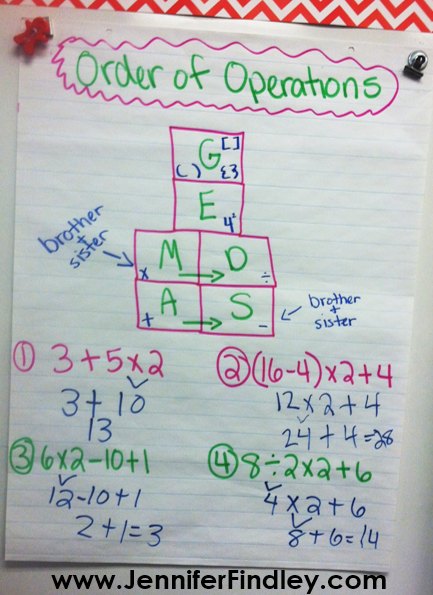 Order of Operations
G [ ]
( ) { }
E
4²
brother
+
sister
M → D
× ÷
A → S
+ −
brother
+
sister
① 3 + 5 x 2
3 + 10
13
② (16 - 4) x 2 + 4
12 x 2 + 4
24 + 4 = 28
③ 6 x 2 - 10 + 1
12 - 10 + 1
2 + 1 = 3
④ 8 ÷ 2 x 2 + 6
4 x 2 + 6
8 + 6 = 14
www.JenniferFindley.com